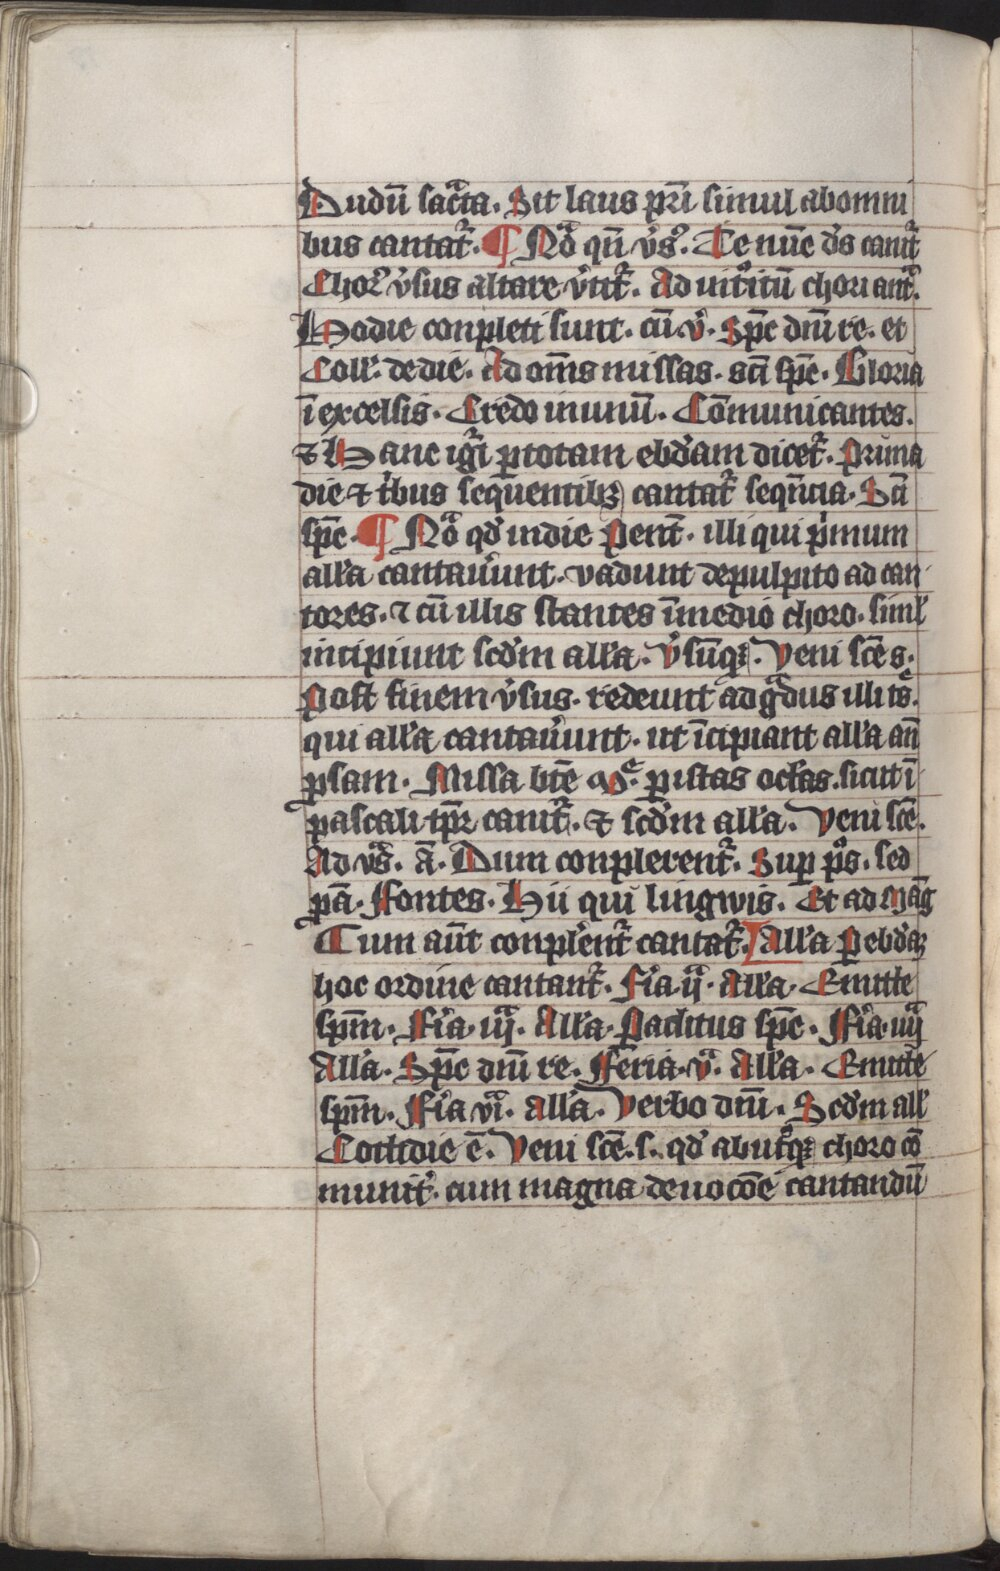 Dudū sac̄ta. Sit laus pr̄i simul abomni
bus cantat᷑. ¶ Nō qn̄ v̓s᷑. Te nūc ds̄ canit᷑
Chor᷑ v̓sus altare v̓tit᷑. Ad introitū chori ant᷑.
Hodie conpleti sunt. cū. v̓. Spc̄ dn̄i re. et
Coll᷑. de die. Ad om̄s missas. sc̄i spc̄. Gloria
ī excelsis. Credo in unū. Cōmunicantes.
⁊ Hanc igit᷑ ꝑ totam ebd̓am dicet᷑. Prima
die ⁊ t̓bus sequentibꝫ cantat᷑ seqn̄cia. Sc̄i
spc̄. ¶ Nō qd̓ in die Pent̄. illi qui p̓mum
all̓a cantav̓unt. vadunt de pulpito ad can
tores. ⁊ cū illis stantes ī medio choro. siml̓
incipiunt scd̓m all̓a. v̓sūqꝫ. Veni sc̄e s.
Post finem v̓sus. redeunt ad gͣdus illi
qui all̓a cantav̓unt. ut īcipiant all̓a an̄
psam. Missa bt̄e ꝑ istas octas. sicut ī
pascali tp̄r canit᷑. ⁊ scd̓m all̓a. Veni sc̄e.
Ad vs̄. ā. Dum conplerent᷑. Suꝑ pͦs. sed
pā. Fontes. Hii qui lingwis. Et ad Māg
Cum aūt conpl̓ent᷑ cantat᷑. All̓a ꝑ ebd̓aꝫ
hoc ordine cantant᷑. Fīa. ijͣ. All̓a. Emitte
spm̄. Fīa. iijͣ. All̓a. Paclitus spc̄. Fīa. iiijͣ
All̓a. Spc̄ dn̄i re. Feria. vͣ. All̓a. Emitte
spm̄. Fīa vīͣ. all̓a. Verbo dn̄i. Scd̓m all̓
Cottidie ē. Veni sc̄e. s. qd̓ ab ut᷑qꝫ choro cō
munit᷑. cum magna deuocōe cantandū